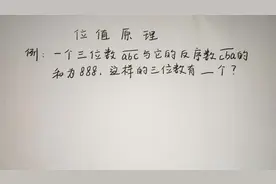 位值原理
例：一个三位数abc与它的反序数cba的
和为888，这样的三位数有__个？